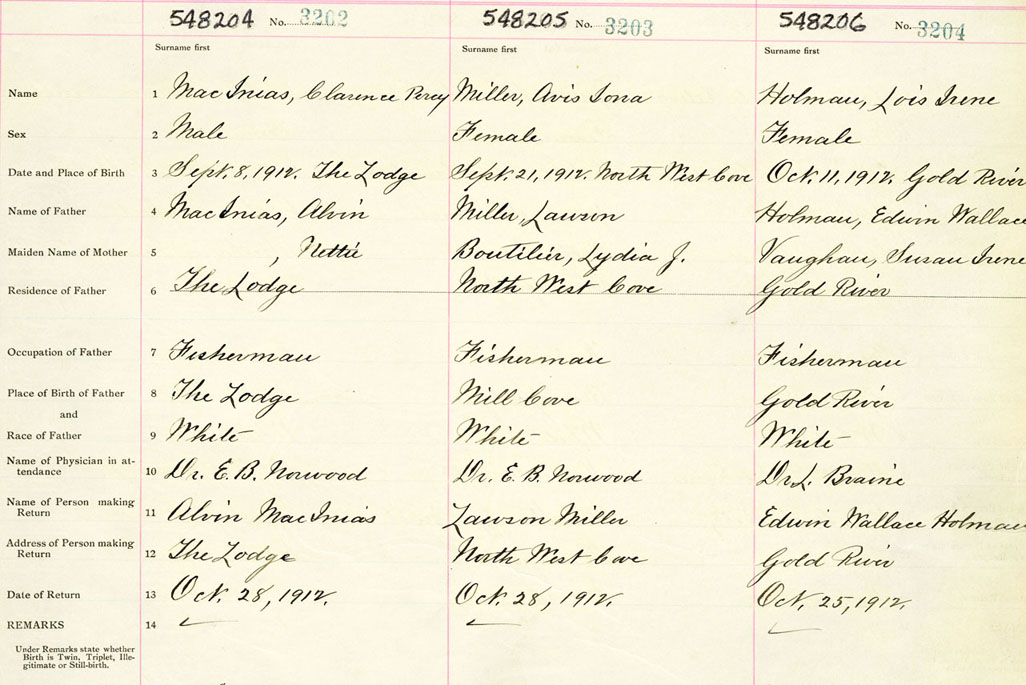 548204 No. 3202 548205 No. 3203 548206 No. 3204
Surname first Surname first Surname first
Name 1 MacInias, Clarence Percy Miller, Avis Iona Holman, Lois Irene
Sex 2 Male Female Female
Date and Place of Birth 3 Sept. 8, 1912. The Lodge Sept. 21, 1912. North West Cove Oct. 11, 1912. Gold River
Name of Father 4 MacInias, Alvin Miller, Lawson Holman, Edwin Wallace
Maiden Name of Mother 5 , Nettie Boutilier, Lydia J. Vaughan, Susan Irene
Residence of Father 6 The Lodge North West Cove Gold River
Occupation of Father 7 Fisherman Fisherman Fisherman
Place of Birth of Father 8 The Lodge Mill Cove Gold River
and
Race of Father 9 White White White
Name of Physician in at-
tendance 10 Dr. E. B. Norwood Dr. E. B. Norwood Dr. L. Braine
Name of Person making
Return 11 Alvin MacInias Lawson Miller Edwin Wallace Holman
Address of Person making
Return 12 The Lodge North West Cove Gold River
Date of Return 13 Oct. 28, 1912. Oct. 28, 1912. Oct. 25, 1912.
REMARKS 14
Under Remarks state whether
Birth is Twin, Triplet, Ille-
gitimate or Still-birth.